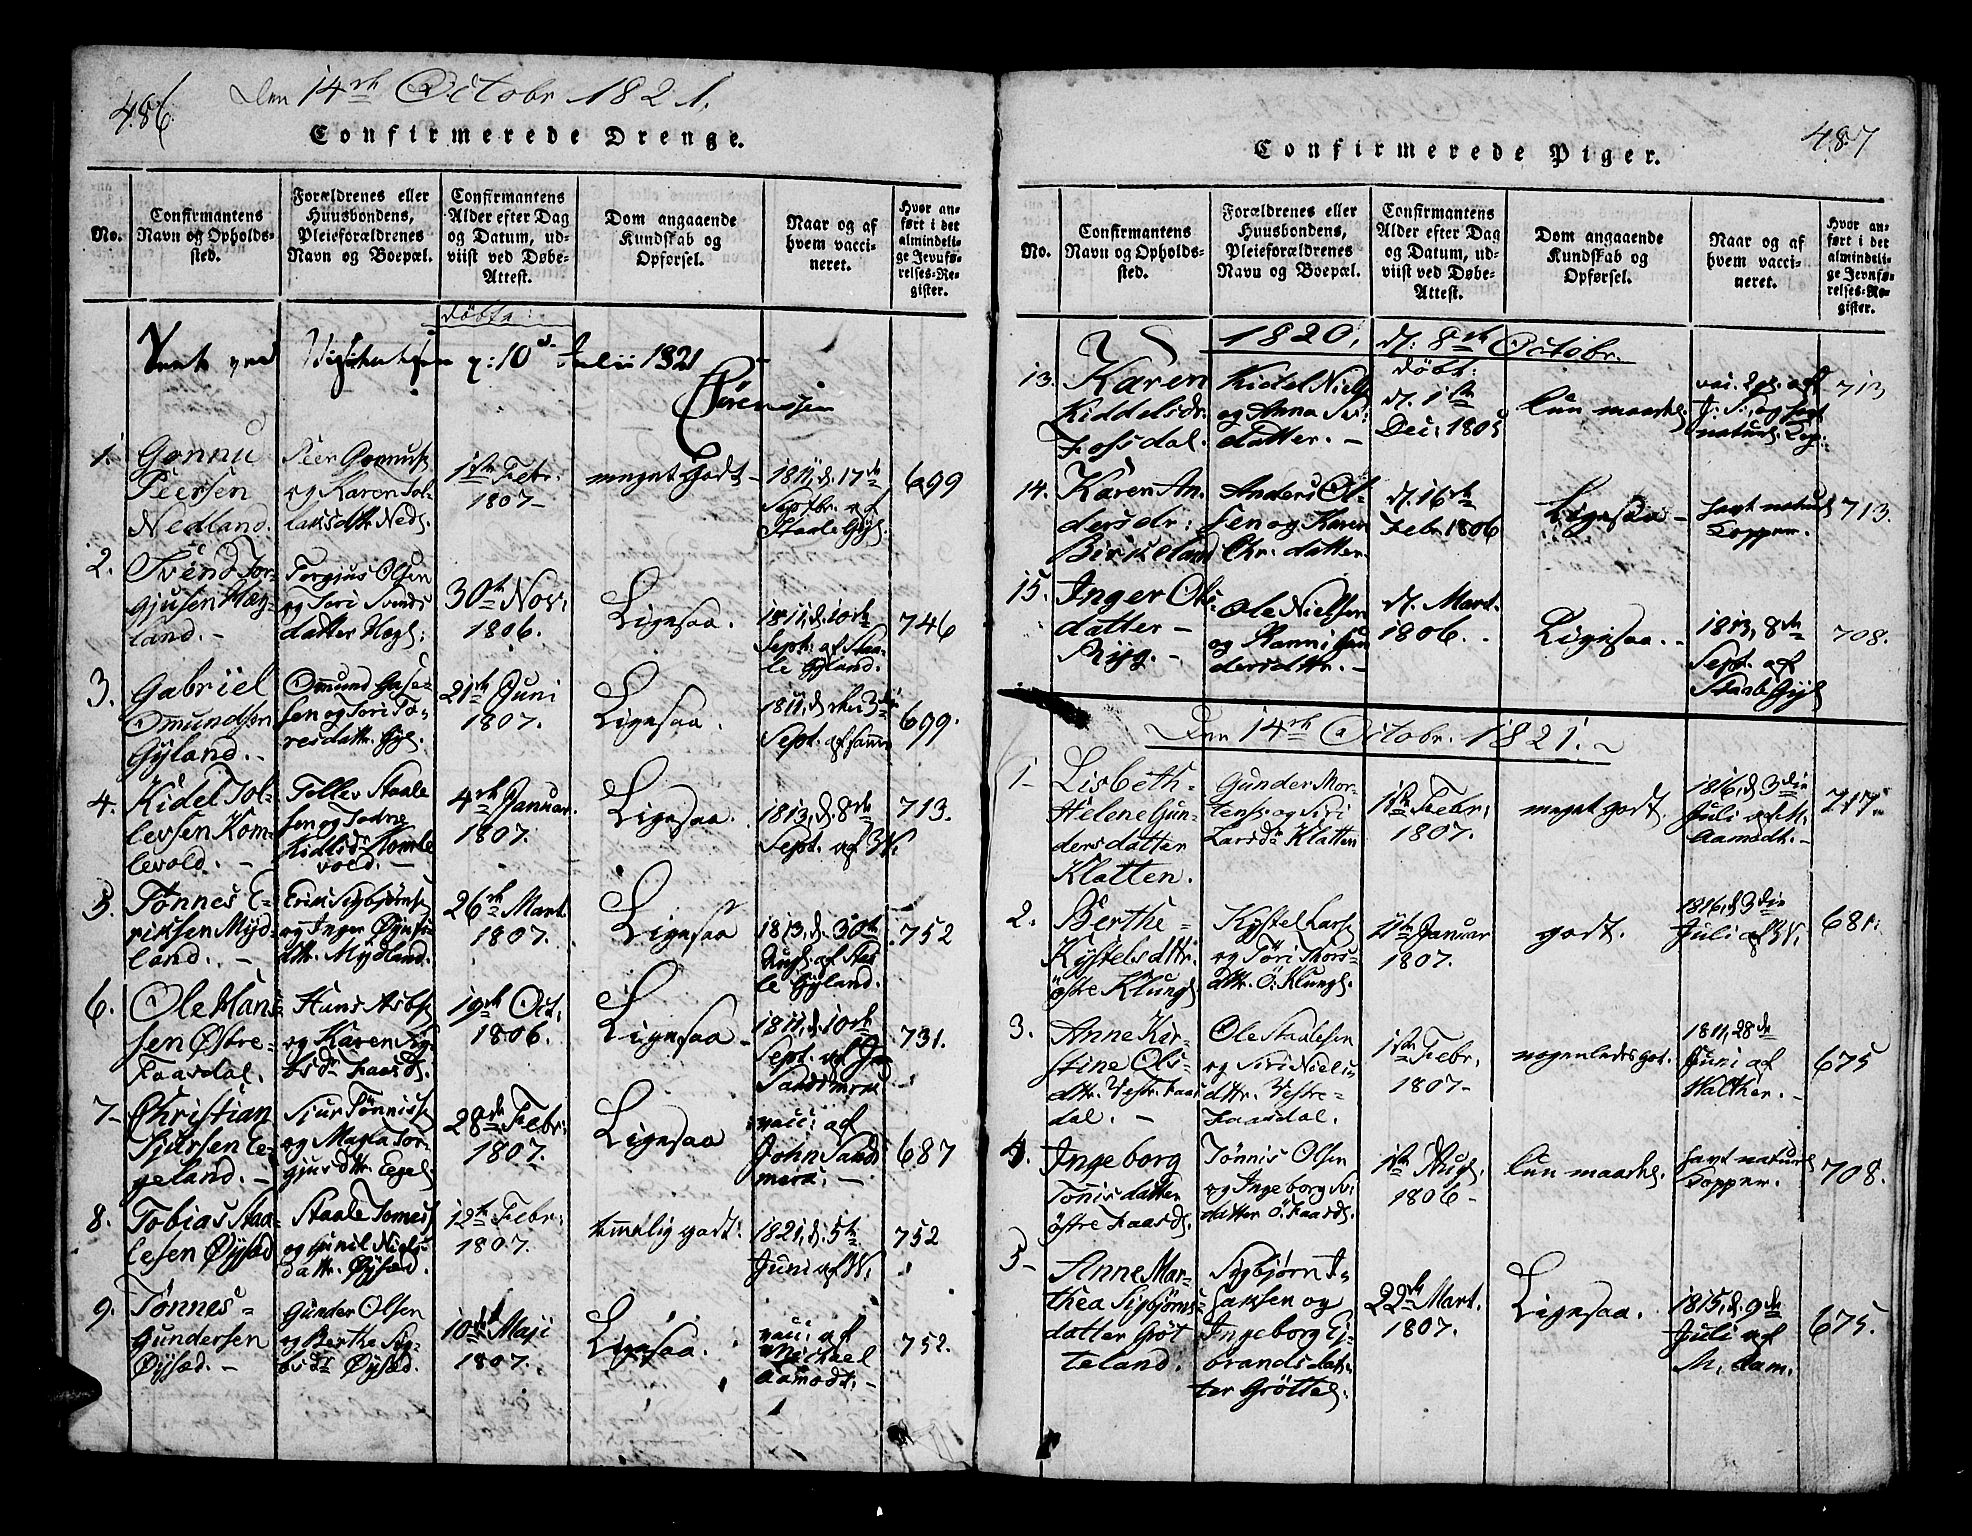 486
Den 14de Octobr 1821.
Confirmerede Drenge.
No.
Confirmantens Navn og Opholdssted.
Forældrenes eller Huusbondens, Pleieforældrenes Navn og Boepæl.
Confirmantens Alder efter Dag og Datum, udviist ved Døbe-Attest.
Dom angaaende Kundskab og Opførsel.
Naar og af hvem vaccineret.
Hvor anført i det almindelige Jevnførelses-Register.
döbte:
10de Julii 1821
Sörenssen
1.
Gonnu
Peersen
Nedland.
Peer Gonnuss
og Karen Tol-
laksdttr Neds.
1ste Febr:
1807-
meget godt-
1811, d. 17de
Septbr. af
Staale Gyl.
699
2.
Svend Tor-
gjusen Hæg-
land.-
Torgjus Olsen
og Tori Svends
datter Hægl:
30te Nov:
1806.
Ligesaa.
1811, d. 10de
Sept: af Staa-
le Gyland.
746
3.
Gabriel
Omundsen
Gyland.-
Omund Gase-
sen og Tori To-
resdattr. Gyl.
21de Juni
1807.
Ligesaa.
1811, d. 3die
Sept. af samme
699.
4.
Kidel Tol-
lefsen Kom-
levold.-
Tollev Staale
sen og Todne
Kidelsdr Komle
vold.-
4de Januar.
1807.
Ligesaa.
1813, d. 8de
Sept. af
713.
5.
Tønnes E-
riksen Myd-
land.-
Erik Sigbjørns
og Inger
dttr. Mydland.
26de Mart.
1807.
Ligesaa
1813, d. 30te
Augs. af Staa
le Gyland.
752
6.
Ole Han-
sen Østre-
Faasdal.
Hans Asbs
og Karen
Faasd.
19de Oct:
1806.
Ligesaa
1811, d. 10de
Sept. af
Sandsmoen
731.
7-
Christian
Sjursen E-
geland.-
Sjur Tønniss
og Magla Tor-
gjusdttr. Egel.
28de Febr:
1807.
Ligesaa
vacc: af
John Sands
mora:-
687
8.
Tobias Staa-
lesen Øysæd
Staale Tomess
og Gunil Niels
dattr. Øysæd.
12te Febr:
1807.
temmelig godt:
1821, d. 5te
Juni af
752
9.
Tønnes-
Gundersen
Øysæd.-
Gunder Olsen
og Berthe Sig-
Øysæd.
10de Maji
1807.
Ligesaa.
vacc: af
Michael
Aamodt.-
752.
487
Confirmerede Piger.
No.
Confirmantens Navn og Opholdssted.
Forældrenes eller Huusbondens, Pleieforældrenes Navn og Boepæl.
Confirmantens Alder efter Dag og Datum, udviist ved Døbe-Attest.
Dom angaaende Kundskab og Opførsel.
Naar og af hvem vaccineret.
Hvor anført i det almindelige Jevnførelses-Register.
1820, d. 8de Octobr.
döbt:
13.
Karen
Kiddelsdr.
Fosdal.
Kidel Niels
og Anna Sv:
datter.-
d. 1ste
Dec: 1805
kun maadel.
og havt
naturl. Kop:
713
14.
Karen An-
dersdr:
Birkeland
Anders Ol-
sen og Karen
Chr. datter
d. 16de
Febr 1806
Ligesaa-
havt naturl
Kopper.
713.
15.
Inger Ols-
datter-
Ryg.-
Ole Nielsen
og Hanni Gun
dersdttr.-
d. Mart.
1806.
Ligesaa.-
1813, 8de
Sept. af
Staale Gyl
708.
Den 14de Octobr. 1821.
1-
Lisbeth-
Helene Gun-
dersdatter
Klatten.
Gunder Mor-
tenss. og Siri
Larsdr Klatten
1ste Febr:
1807.
meget godt.
1816, d 3die
Juli af M.
Aamodt.-
717
2.
Berthe-
Kystelsdttr.
östre Klungl
Kystel Larss
og Töri Thors-
dttr. Ö. Klungl.
11te Januar
1807.
godt.
1816, d 3die
Juli af
681.
3.
Anne Kir-
stine Ols-
dttr. Vestre Faas
dal.-
Ole Staalesen
og Siri Niels
dttr. Vestre-
Faasdal.
1ste Febr,
1807-
nogenledes got.
1811, 28de
Juni af
Walther.-
675
4.
Ingeborg
Tönnisdatter
östre Faasd.
Tønnis Olsen
og Ingeborg Sv:
datter Ö. Faasd.
1ste Augs.
1806-
kun maadel.
havt naturl
Kopper.
708.
5-
Anne Mar-
thea Sigbjørns-
datter Gröt
teland.
Sigbjørn I-
saksen og
Ingeborg Ej-
brandsdat-
ter Gröttel.
22de Mart.
1807.
Ligesaa.
1815, d. 9de
Juli af
M. Aam.
675.